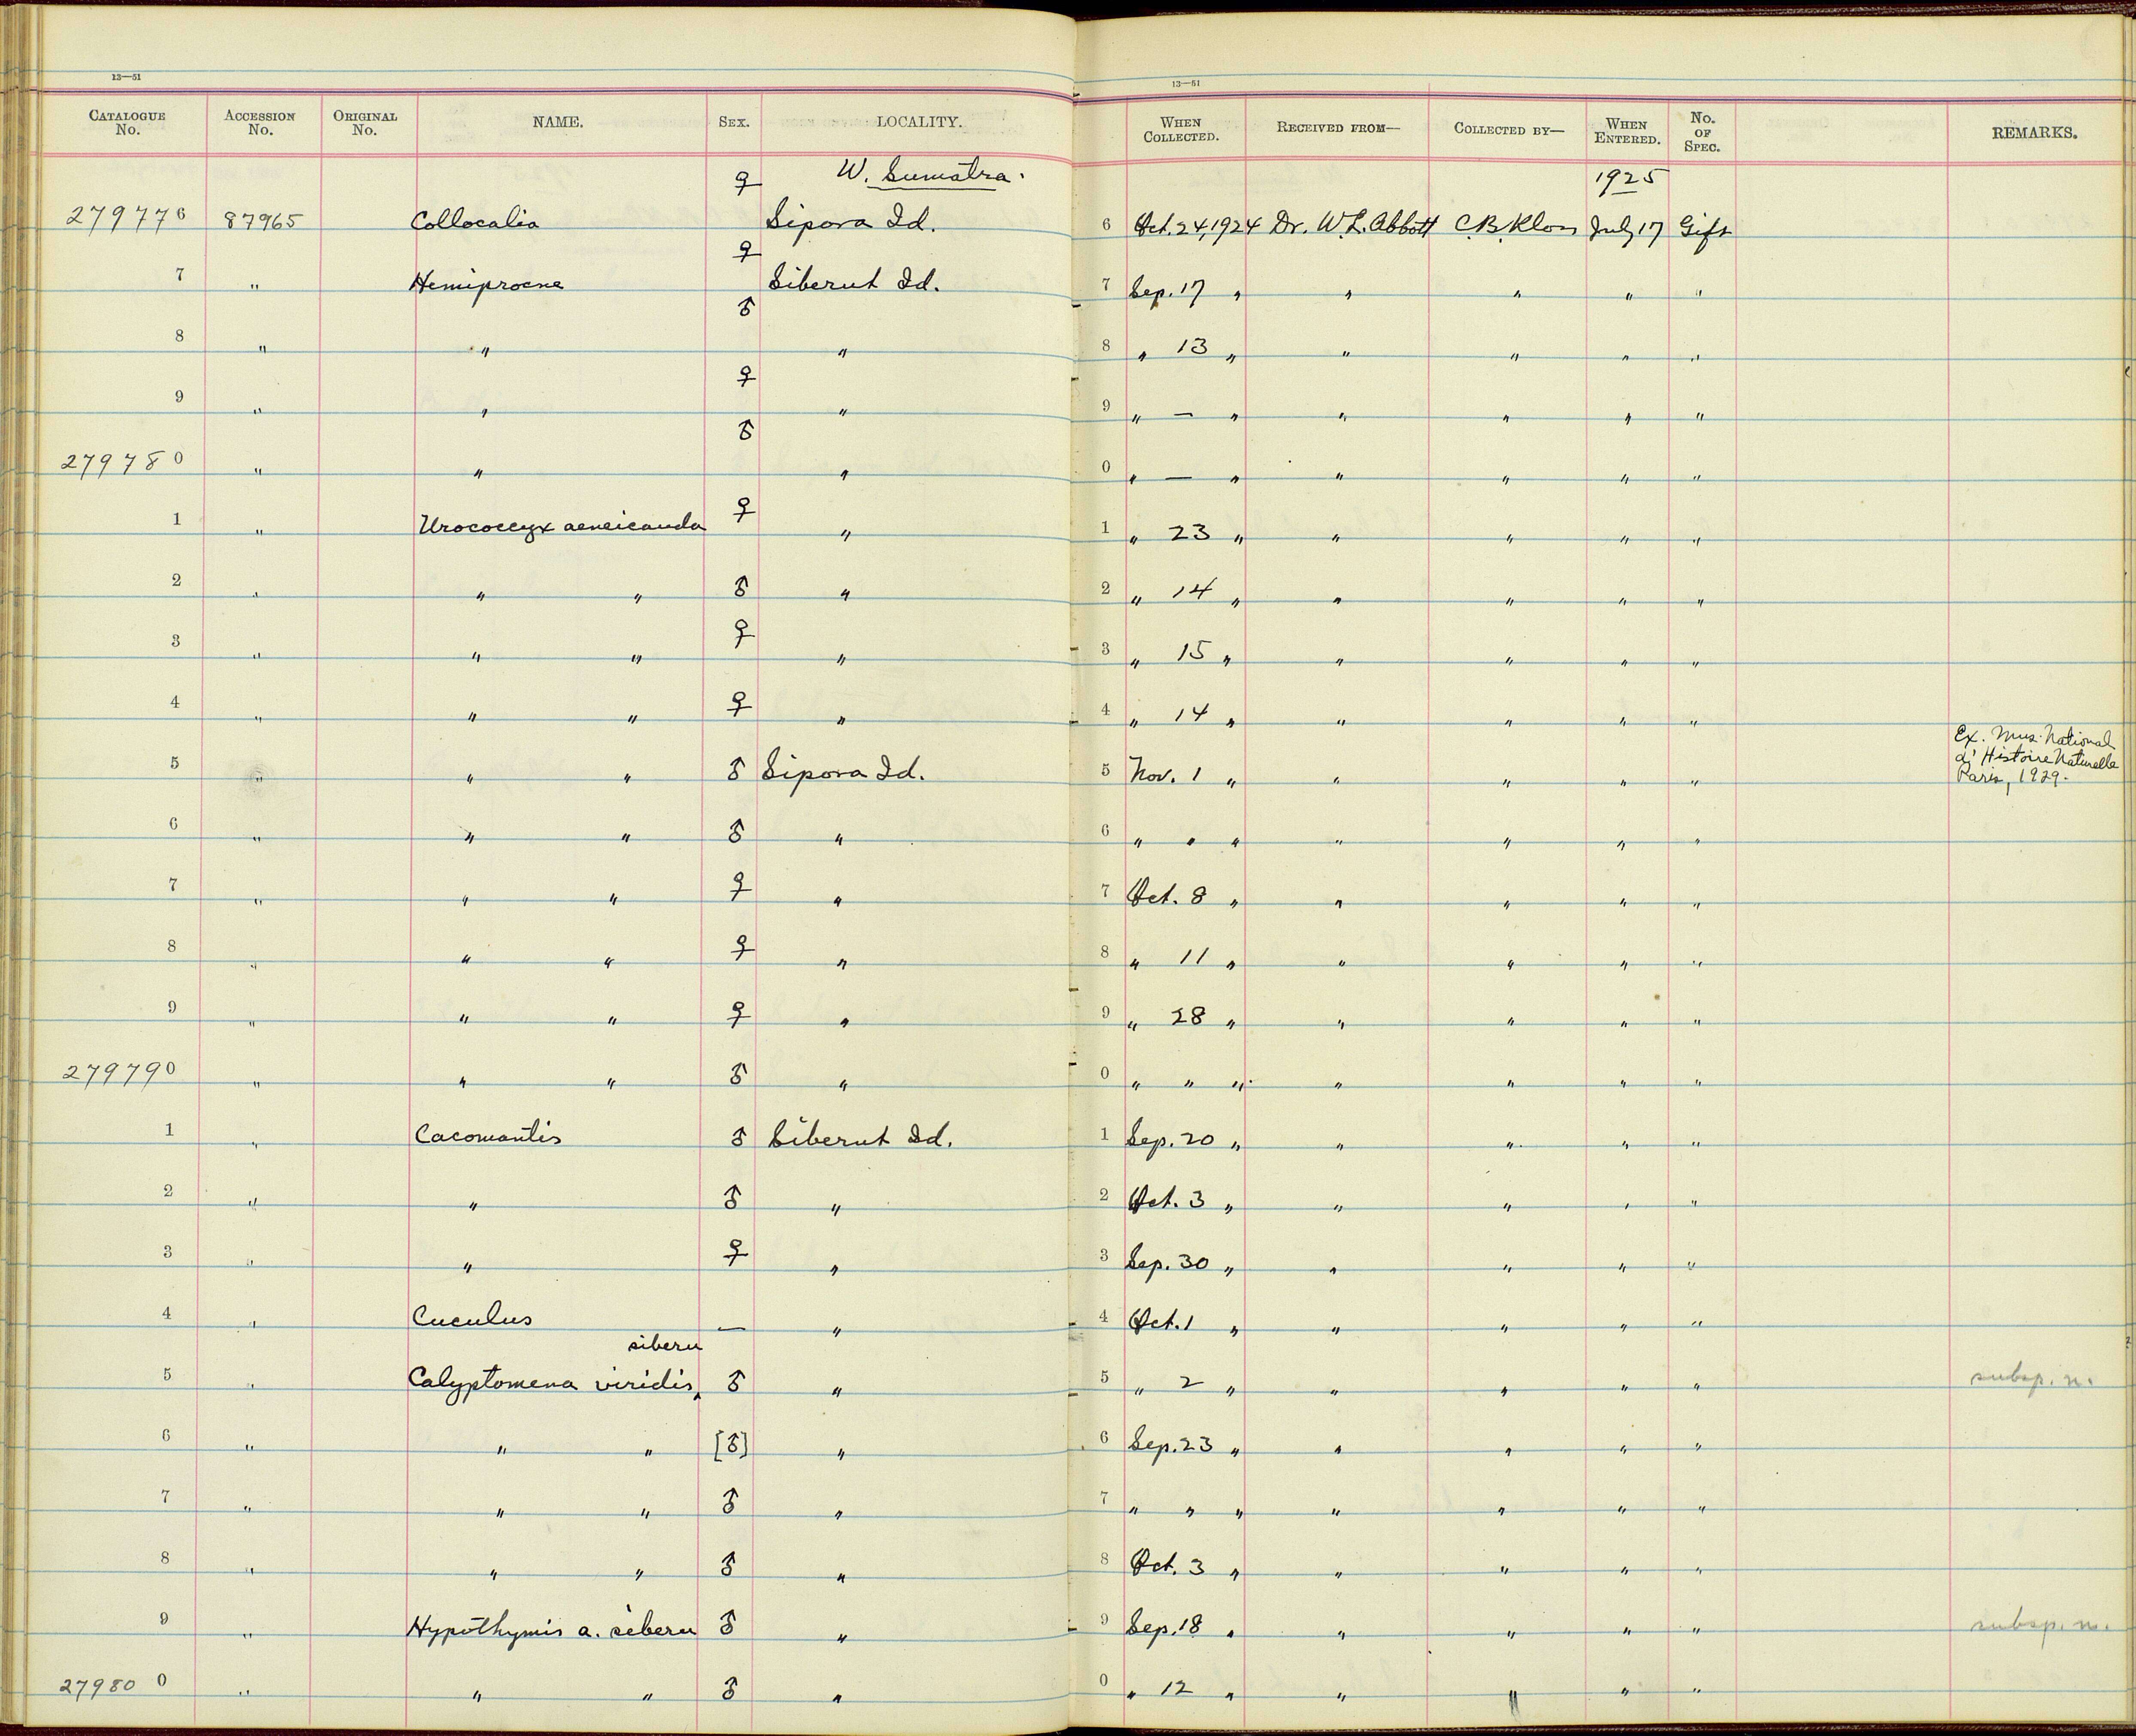 13—51
13—51
CATALOGUE No. ACCESSION No. ORIGINAL No. NAME. SEX. LOCALITY. WHEN COLLECTED. RECEIVED FROM— COLLECTED BY— WHEN ENTERED. No. OF SPEC. REMARKS.
♀ W. Sumatra. 1925
279776 87965 Collocalia Sipora Id. 6 Oct. 24, 1924 Dr. W. L. Abbott C. B. Kloss July 17 Gift
7 " Hemiprocne ♀ Siberut Id. 7 Sep. 17 " " " " "
8 " " ♂ " 8 " 13 " " " " "
9 " " ♀ " 9 " — " " " " "
279780 " " ♂ " 0 " — " " " " "
1 " Urococcyx aeneicauda ♀ " 1 " 23 " " " " "
2 " " " ♂ " 2 " 14 " " " " "
3 " " " ♀ " 3 " 15 " " " " "
4 " " " ♀ " 4 " 14 " " " " "
5 " " " ♂ Sipora Id. 5 Nov. 1 " " " " " Ex. Mus. National
d'Histoire Naturelle
Paris, 1929.
6 " " " ♂ " 6 " " " " " " "
7 " " " ♀ " 7 Oct. 8 " " " " "
8 " " " ♀ " 8 " 11 " " " " "
9 " " " ♀ " 9 " 28 " " " " "
279790 " " " ♂ " 0 " " " " " " "
1 " Cacomantis ♂ Siberut Id. 1 Sep. 20 " " " " "
2 " " ♂ " 2 Oct. 3 " " " " "
3 " " ♀ " 3 Sep. 30 " " " " "
4 " Cuculus — " 4 Oct. 1 " " " " "
siberu
5 " Calyptomena viridis ‸ ♂ " 5 " 2 " " " " " subsp. n.
6 " " " [♂] " 6 Sep. 23 " " " " "
7 " " " ♂ " 7 " " " " " " "
8 " " " ♂ " 8 Oct. 3 " " " " "
9 " Hypothymis a. siberu ♂ " 9 Sep. 18 " " " " " subsp. n.
279800 " " " ♂ " 0 " 12 " " " " "